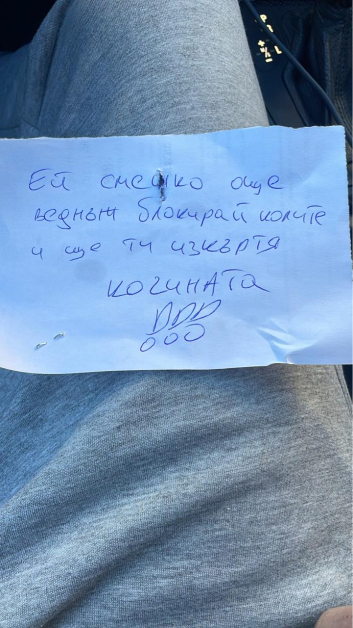 Ей смешко още
веднъж блокирай колите
и ще ти изкъртя
кочината
DDD
000